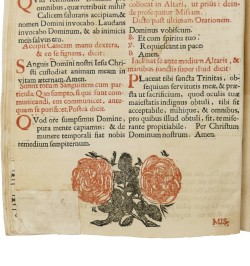 omnibus, quæ retribuit mihi?
Calicem salutaris accipiam, &
nomen Domini invocabo. Laudans
invocabo Dominum, & ab inimicis
meis salvus ero.
Accipit Calicem manu dextera,
& eo se signans, dicit:
Sanguis Domini nostri Jesu Chri-
sti custodiat animam meam in
vitam æternam. Amen.
Sumit totum Sanguinem cum par-
ticula. Quo sumpto, si qui sunt com-
municandi, eos communicet, ante-
quam se purificet. Postea dicit:
QVod ore sumpsimus Domine,
pura mente capiamus: & de
munere temporali fiat nobis
remedium sempiternum.
collocat in Altari, ut prius: dein-
de prosequitur Missam.
Dicto post ultimam Orationem.
Dominus vobiscum.
Et cum spiritu tuo:
Requiescant in pace
Amen.
Inclinat se ante medium Altaris, &
manibus junctis super illud dicit:
PLaceat tibi sancta Trinitas, ob-
sequium servitutis meæ, & præ-
sta ut sacrificium, quod oculis tuæ
majestatis indignus obtuli, tibi sit
acceptabile, mihique, & omnibus,
pro quibus illud obtuli, sit, te mise-
rante propitiabile. Per Christum
Dominum nostrum. Amen.
MIS-